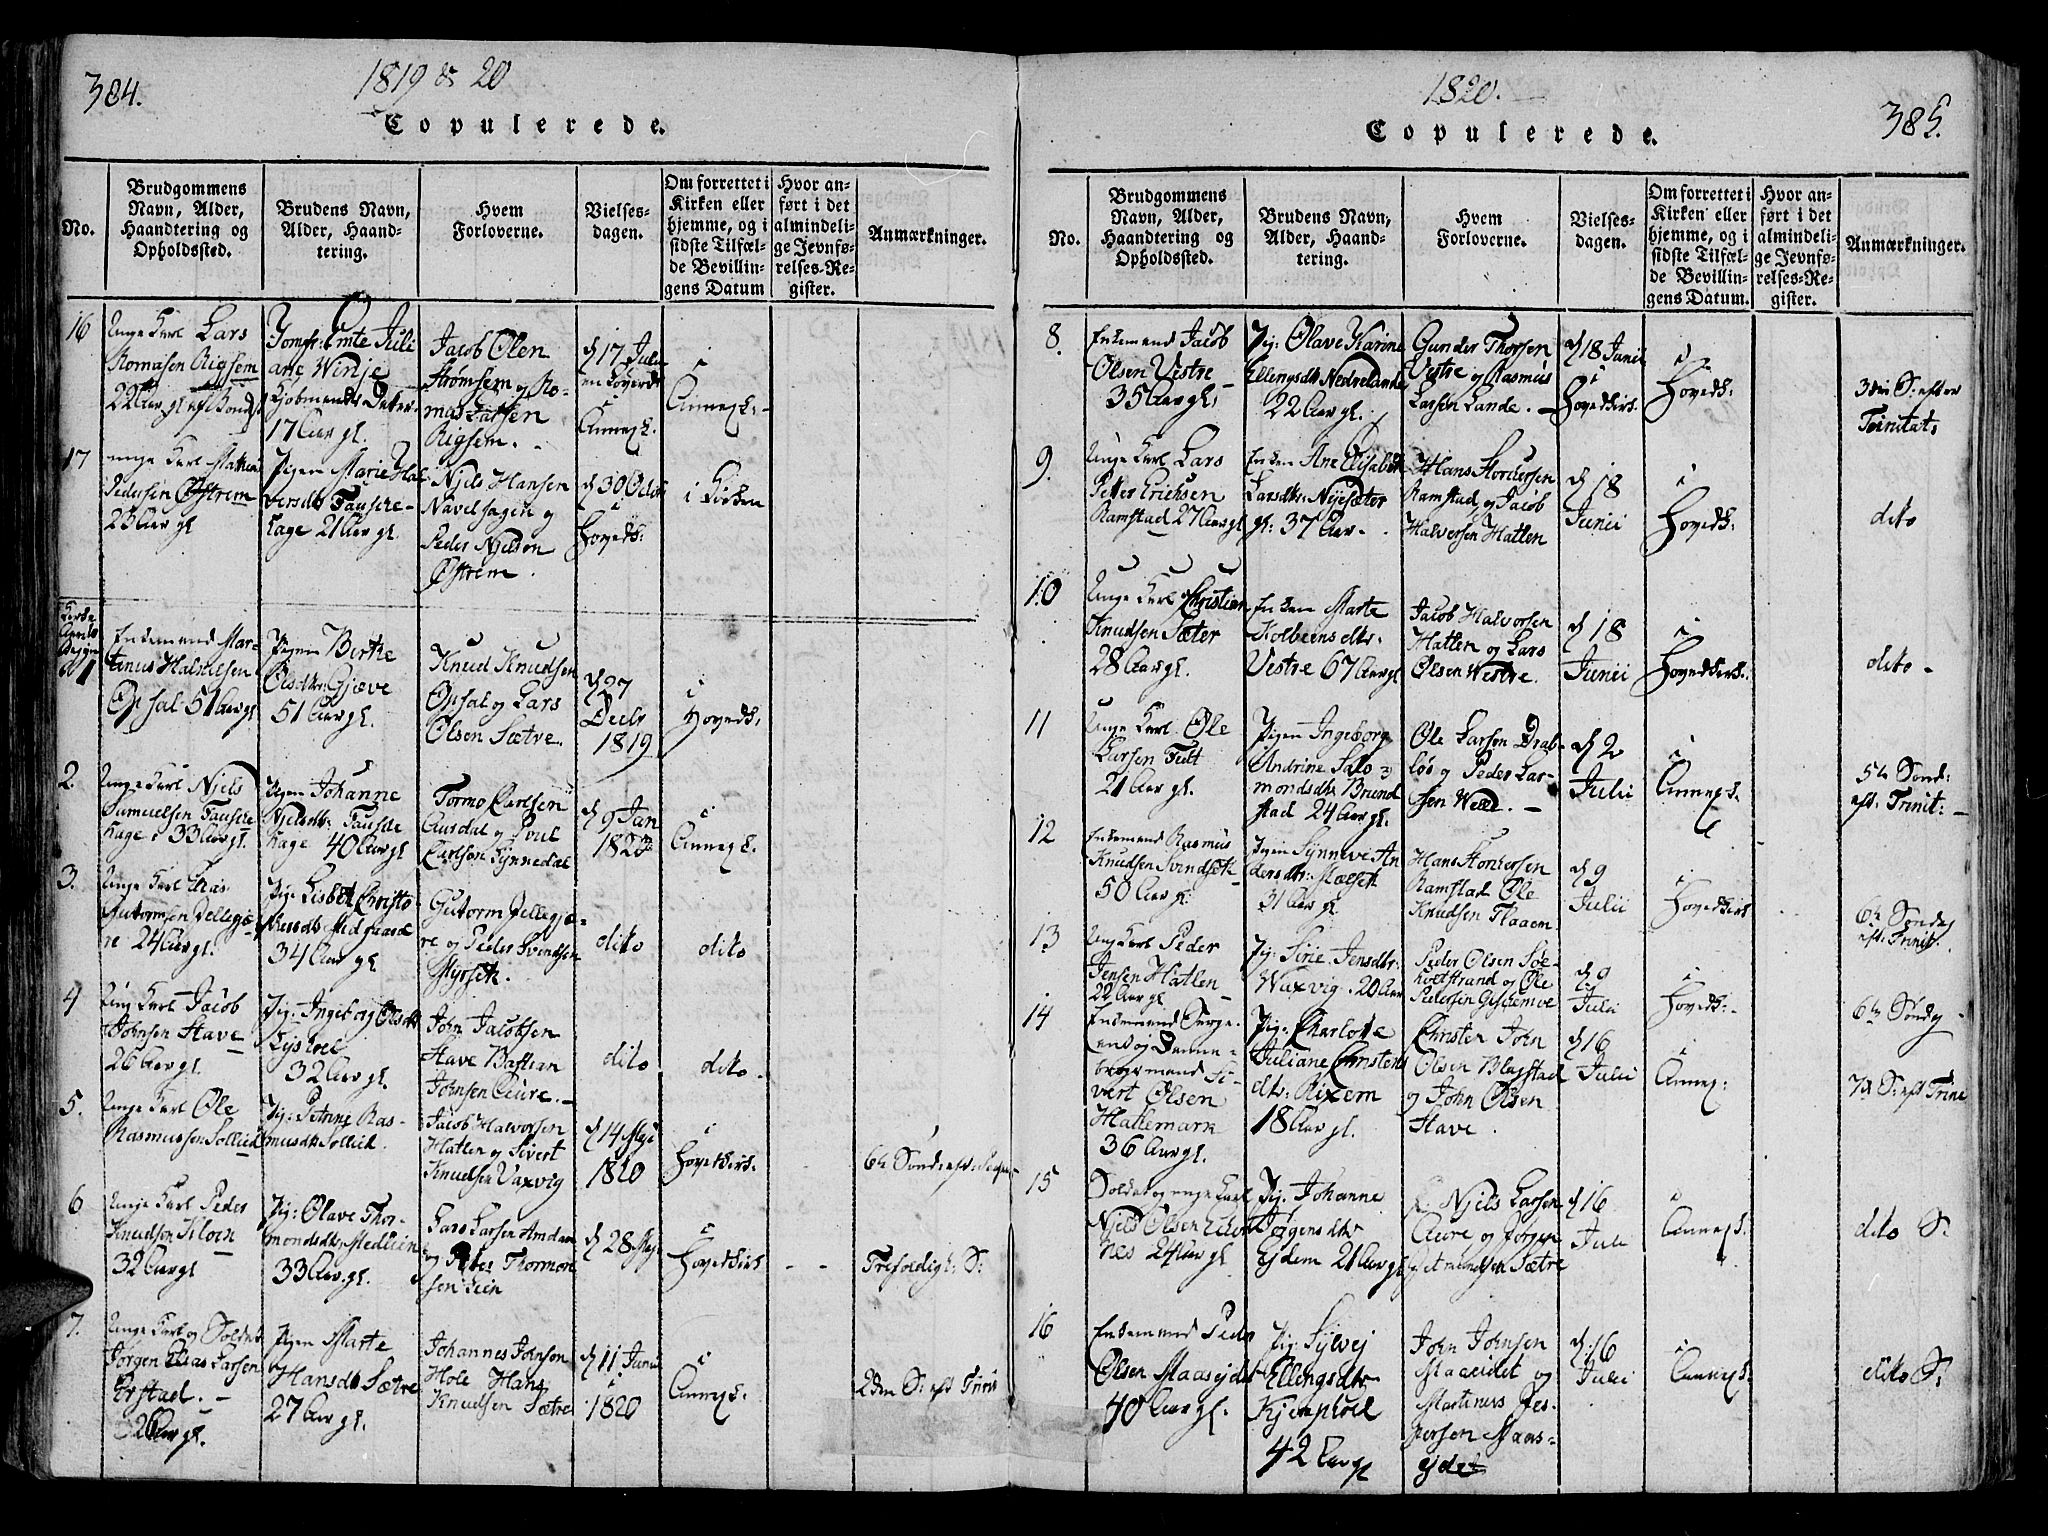 384.
1819 & 20
Copulerede.
No.
Brudgommens
Navn, Alder,
Haandtering og
Opholdssted.
Brudens Navn,
Alder, Haand-
tering.
Hvem
Forloverne.
Vielses-
dagen.
Om forrettet i
Kirken eller
hjemme, og i
sidste Tilfæl-
de Bevillin-
gens Datum
Hvor an-
ført i det
almindeli-
ge Jevnfø-
relses-Re-
gister.
Anmærkninger.
16
Unge Karl Lars
Romasen Rigsem
22 Aar gl.
Jomfr:
Juli
ane Winje
17 Aar gl.
Jacob Olen
Strømsem og Ro-
mas Larsen
Rigsem.
d 17 Julii
i
Annexk.
i
Annexk:
17
unge Karl
Pedersen Østrem
23 Aar gl
Pigen Marie Hal
versdtr Fauske-
hage 21 Aar gl.
Niels Hansen
Navelsagen og
Peder Njelsen
Østrem.
d 30 Octbr
i
Hovedk:
i Kirken
1
Enkemand Mar-
tinus
Opsal 51 Aar gl
Pigen Birthe
Olsdtr: Gjæve
51 Aar gl.
Knud Knudsen
Opsal og Lars
Olsen Sætre.
d 27
Decbr
1819
i
Hovedk:
2.
Unge Karl Njels
Samuelsen Fauske
hage 33 Aar gl.
Pigen Johanne
Njelsdtr: Fauske
hage 40 Aar gl
Tormo Carlsen
Aursdal og Poul
Carlsen Synnedal
d 9 Jan
1820
i
Annexk.
3.
Unge Karl
Gutormsen Jellegjæ-
re 24 Aar gl.
Pig: Lisbet Christo
phersdtr Midgaard
34 Aar gl.
Gutorm Jellegjæ-
re og Peder Svendsen
Myrsetk.
dito
dito
4
Ung Karl Jacob
Johnsen Stave
26 Aar gl.
Pig: Ingeborg Olsdtr
32 Aar gl.
John Jacobsen
Stave Bastian
Johnsen Aure.
dito
dito
5.
Unge Karl Ole
Rasmussen Sollied
Pig: Petrine Ras-
musdtr Sollied.
Jacob Halvorsen
Hatlen og Sivert
Knudsen Vaxvig
d 14 Maji
1820
i
Hovedkirk:
6
Unge Karl Peder
Knudsen
32 Aar gl
Pig: Olave Thor-
mondsdtr
33 Aar gl.
Lars Larsen Amdam
og Peder Thormon
sen
d 28 Maji
i
Hovedkirk
Trefoldigh: S:
7.
Unge Karl og Soldat
Jørgen Elias Larsen
Ørstad.
26 Aar gl.
Pigen Marte
Hansdtr Sætre
27 Aar gl.
Johannes Johnsen
Hole Hans
Knudsen Sætre
d 11 Junii
1820
i
Annexk.
2den S: eft Trinit
1820.
385.
Copulerede.
No.
Brudgommens
Navn, Alder,
Haandtering og
Opholdssted.
Brudens Navn,
Alder, Haand-
tering.
Hvem
Forloverne.
Vielses-
dagen.
Om forrettet i
Kirken eller
hjemme, og i
sidste Tilfæl-
de Bevillin-
gens Datum.
Hvor an-
ført i det
almindeli-
ge Jevnfø-
relses-Re-
gister.
Anmærkninger.
8.
Enkemand Jacob
Olsen Vestre
35 Aar gl.
Pig: Olave Karine
Ellingsdtr Nedrelande
22 Aar gl.
Gunder Thorsen
Vestre og Rasmus
Larsen Lande.
d 18 Junii
i
Hovedkirk.
i
Hovedk:
3die S: efter
Trinitat:
9.
Unge Karl Lars
Peter Erichsen
Ramstad 27 Aar gl
Enken Ane Elisabeth
Larsdtr: Nysæter
gl: 37 Aar.
Hans Stordersen
Ramstad og Jacob
Halversen Hatlen
d 18
Junii
i
Hovedk:
dito
10
Unge Karl Christian
Knudsen Sæter
28 Aar gl.
Enken Marte
Kolbeensdtr
Vestre 67 Aar gl
Jacob Halvorsen
Hatlen og Lars
Olsen Westre.
d 18
Junii
i
Hovedkirk:
dito
11
Unge Karl Ole
Larsen Tutt
21 Aar gl.
Pigen Ingeborg
Andrine Salo
mondsdtr Brund
stad 24 Aar gl.
Ole Larsen Drab-
løs og Peder Lar-
sen
d 2
Julii
i
Annexk.
5te Sønd:
eft: Trinit:
12
Enkemand Rasmus
Knudsen Svindsetk
50 Aar gl.
Pigen Synnevi An
dersdtr:
31 Aar gl.
Hans Stordersen
Ramstad Ole
Knudsen Flaaem
d 9
Julii
i
Hovedkirk
6te Søndag
eft: Trinit.
13
Ung Karl Peder
Jensen Hatlen
22 Aar gl.
Pig: Sirie Jensdtr:
Waxvig 20 Aar
Peder Olsen Søe-
holtstrand og Ole
Pedersen
d 9
Julii
i
Hovedk:
6te Søndag
14
Enkemand Serge-
ant og Danne-
brogsmand Si-
vert Olsen
Hattemark
36 Aar gl.
Pig: Charlotte
Juliane Christens
dtr: Rixem
18 Aar gl.
Christen John
Olsen Blagstad
og John Olsen
Stave.
d 16
Julii
i
Annex:
7de S: eft Trinit
15
Soldat og unge Karl
Niels Olsen
nes 24 Aar gl.
Pig: Johanne
Jørgensdtr
Ejdem 21 Aar gl
Njels Larsen
Aure og Jørgen
Sætre
d 16
Juli
i
Annexk.
dito S:
16
Enkemand Peder
Olsen Maasejdet
40 Aar gl.
Pig: Sylvej
Ellingsdtr
Kjemphoel
42 Aar gl
John Johnsen
Maaseidet og
Martinus Jes-
persen Maas-
ejdet
d: 16
Julii
i
Annexk:
dito S: